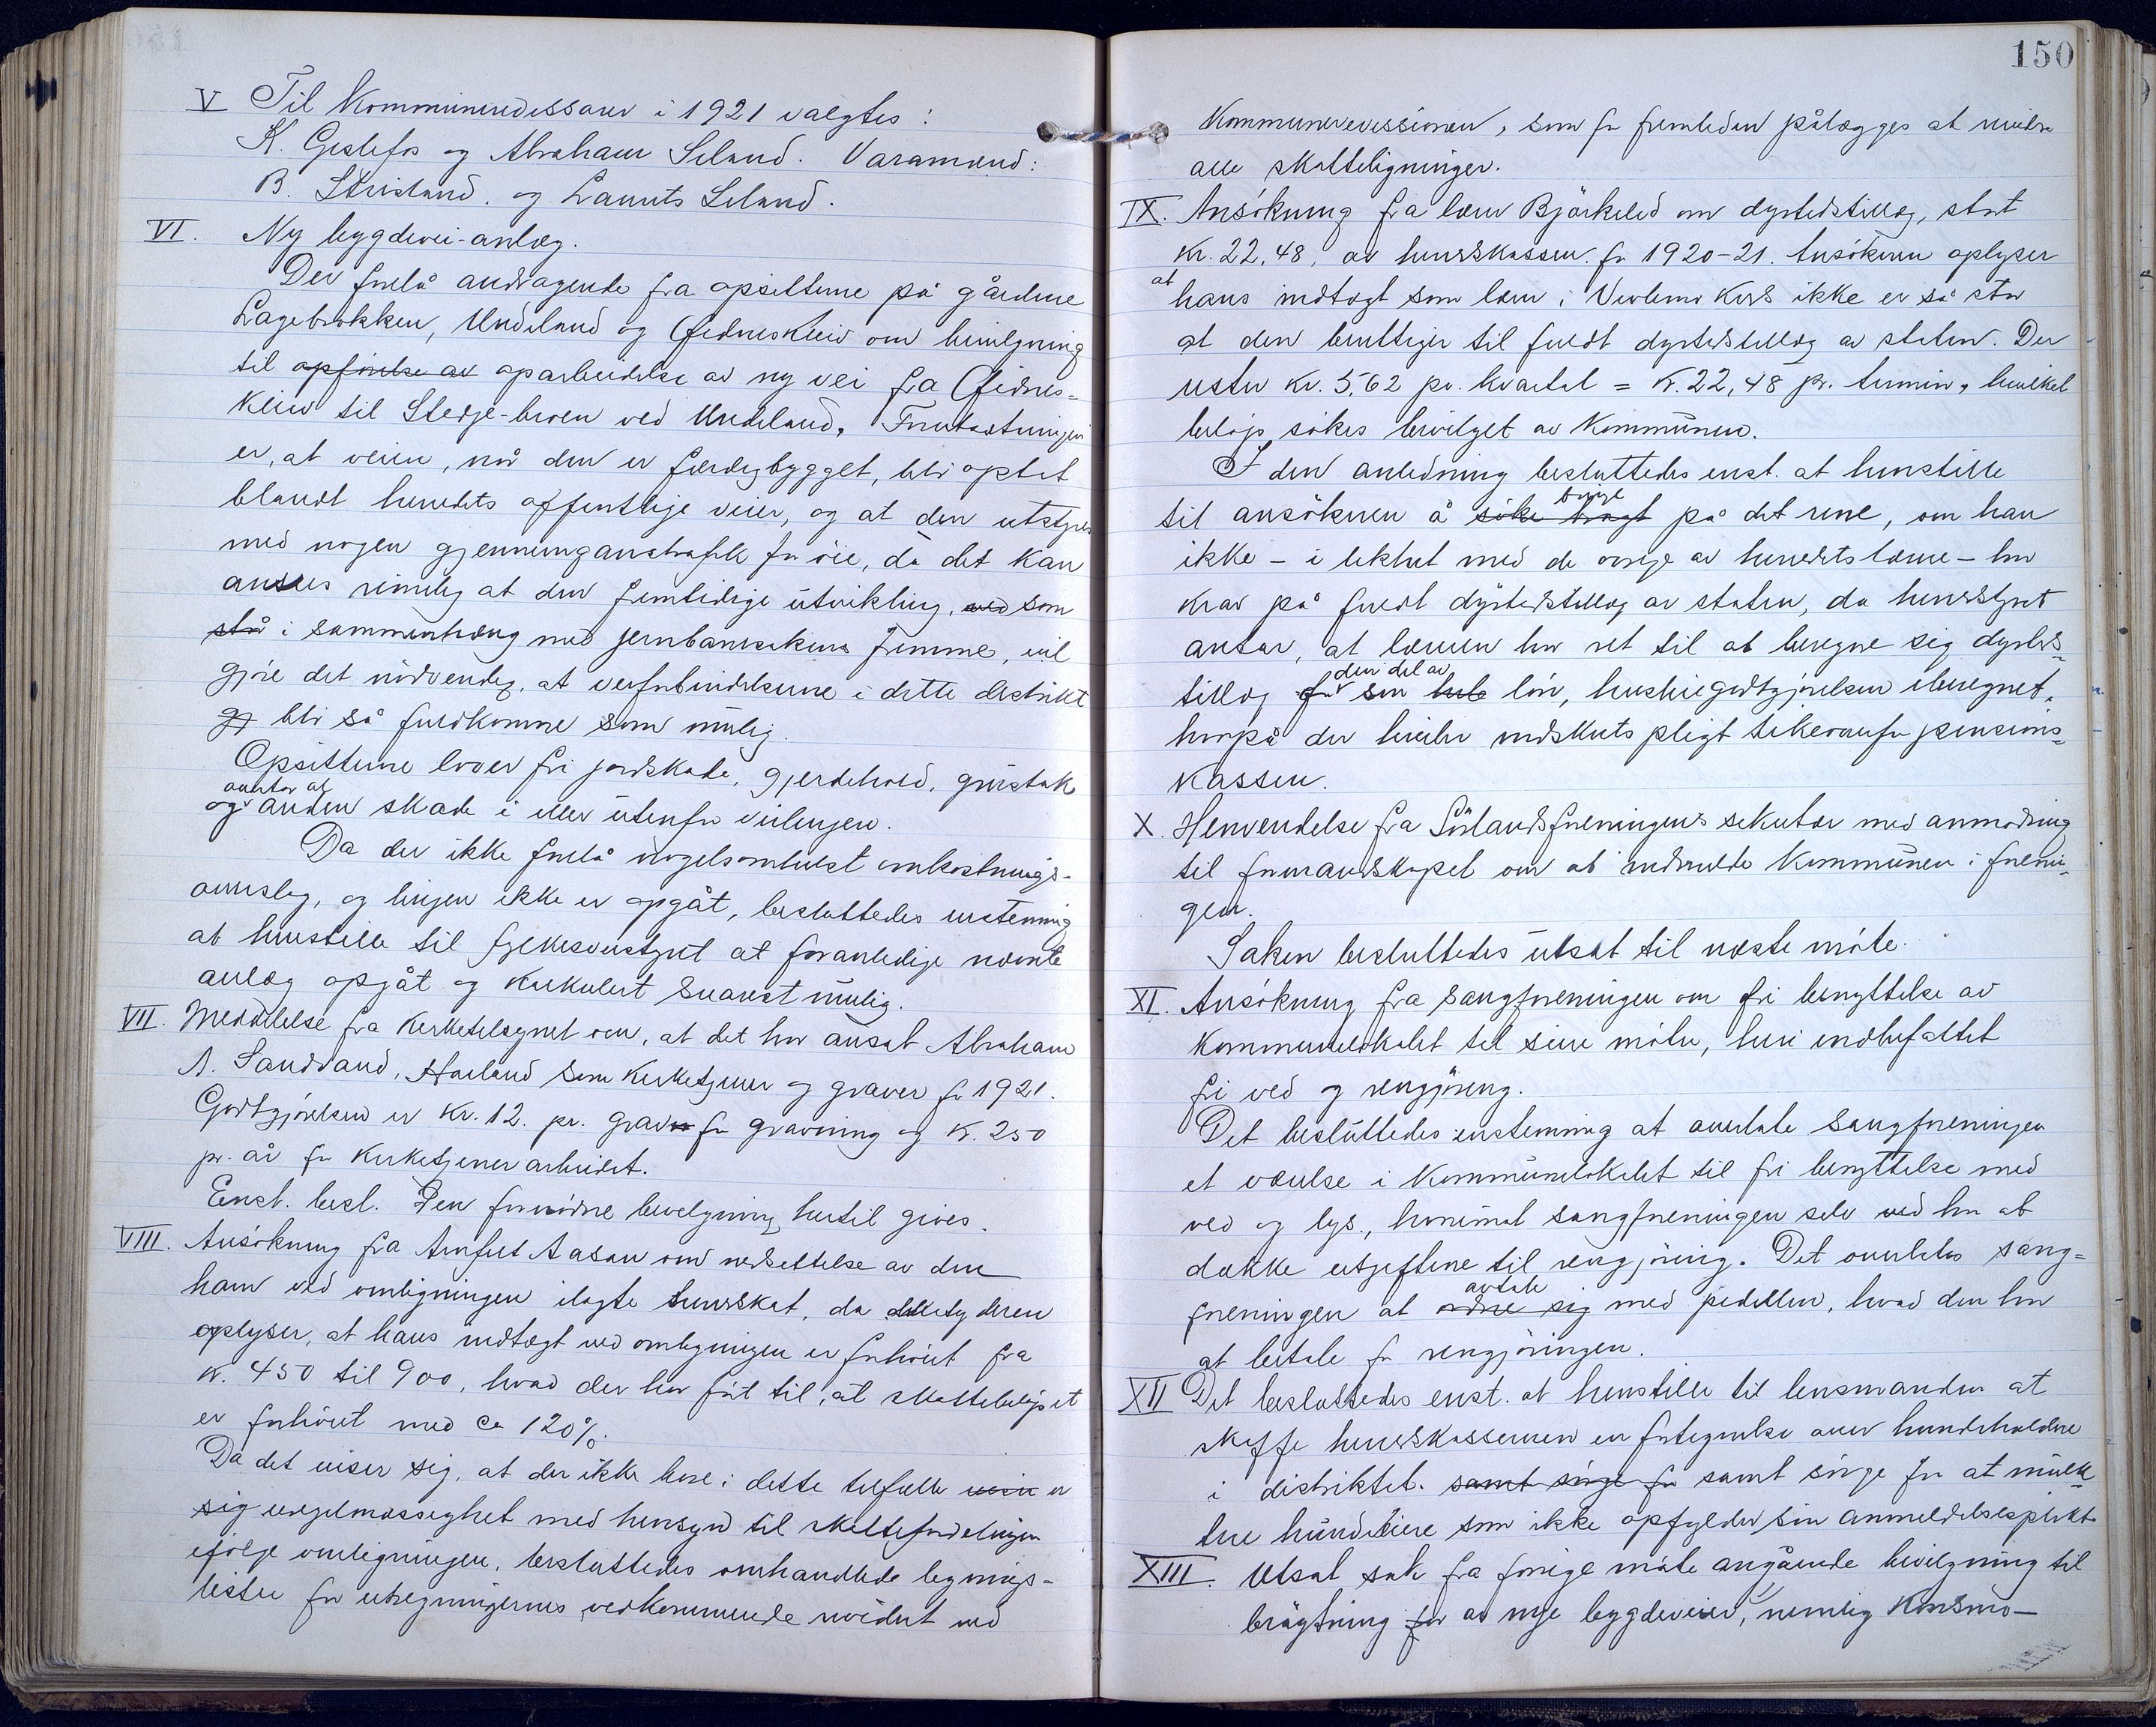 V Til Kommunerevissorer i 1921 valgtes:
K. Geslefos og Abraham Seland. Varamænd:
B. Stuestand. og Laurits Seland.
VI. Ny bygdevei-anlæg.
Der forelå andragende fra opsitterne på gårdene
Lagebrokken, Undeland og Gidneskleiv om bevilgning
til opførelse av oparbeidelse av ny vei fra Gidnes-
kleiv til Stedje-broen ved Undeland. Forutsætningen
er, at veien, når den er færdigbygget, blir optat
blandt herredets offentlige veier, og at den utstyres
med nogen gjennemgangstrafik for öie, da det kan
ansees rimelig at den fremtidige utvikling, ved som
stå i sammenhæng med jernbanesakens fremme, vil
gjöre det nödvendig, at veiforbindelserne i dette distrikt
gj blir så fuldkomne som mulig.
Opsitterne lover fri jordskade, gjerdehold, grustak
og antar al anden skade i eller utenfor veilinjen.
Da der ikke forelå nogetsomhelst omkostnings-
overslag, og linjen ikke er opgåt, besluttedes enstemmig
at henstille til fylkesveistyret at foranledige nævnte
anlæg opgåt og kalkulert snarest mulig.
VII. Meddelelse fra kirketilsynet om, at det har ansat Abraham
A. Sandvand, Høiland som kirketjener og graver for 1921.
Godtgjörelsen er kr. 12. pr. grav for gravning og kr. 250
pr. år for kirketjenerarbeidet.
Enst. besl. Den fornödne bevilgning hertil gives.
VIII. Ansökning fra Arnfelt Aasan om nedsættelse av den
ham ved omligningen ilagte herredskat, da skatyderen
oplyser, at hans indtægt ved omligningen er forhöiet fra
kr. 450 til 900, hvad der har fört til, at skattebelöpet
er forhöiet med ca 120%.
Da det viser sig, at der ikke bare i dette tilfælde viser er
sig uregelmæssighet med hensyn til skattefordelingen
ifölge omligningen, besluttedes omhandlede lignings-
lister for utregningernes vedkommende revidert ved
150
Kommunerevissionen, som for fremtiden pålægges at revidere
alle skatteligninger.
IX. Ansökning fra lærer Björkelid om dyrtidstillæg, stort
kr. 22,48, av herredskassen for 1920-21. Ansökeren oplyser
at hans indtægt som lærer i Vivlemo krets ikke er så stor
at den berettiger til fuldt dyrtidstillæg av staten. Der
rester kr. 5,62 pr. kvartal = kr. 22,48 pr. termin, hvilket
belöp sökes bevilget av Kommunen.
I den anledning besluttedes enst. at henstille
til ansökeren å söke bragt bringe på det rene, om han
ikke - i likhet med de övrige av herredets lærere - har
krav på fuldt dyrtidstillæg av staten, da herredstyret
antar, at læreren har ret til at beregne sig dyrtids-
tillæg for den del av sin hele lön, huslieiegodtgjörelsen iberegnet,
hvorpå der hviler indskuts pligt likeoverfor pensions-
kassen.
X. Henvendelse fra Sörlandsforeningens sekretær med anmodning
til formandskapet om at indmelde kommunen i forenin-
gen.
Saken besluttedes utsat til næste möte.
XI. Ansökning fra sangforeningen om fri benyttelse av
kommunelokalet til sine möter, heri indbefattet
fri ved og rengjöring.
Det besluttedes enstemmig at overlate sangforeningen
et værelse i kommunelokalet til fri benyttelse med
ved og lys., hvorimot sangforeningen selv ved har at
dække utgiftene til rengjöring. Det overlates sang-
foreningen at ordne sig avtale med pedellen, hvad den har
at betale for rengjöringen.
XII Det besluttedes enst. at henstille til lensmanden at
skaffe herredskassereren en fortegnelse over hundeholdere
i distriktet. samt sörge for samt sörge for at mulk-
tere hundeeiere som ikke opfylder sin anmeldelsesplikt.
XIII. Utsat sak fra forrige möte angående bevilgning til
brögtning for av nye bygdeveier, nemlig Konsmo-